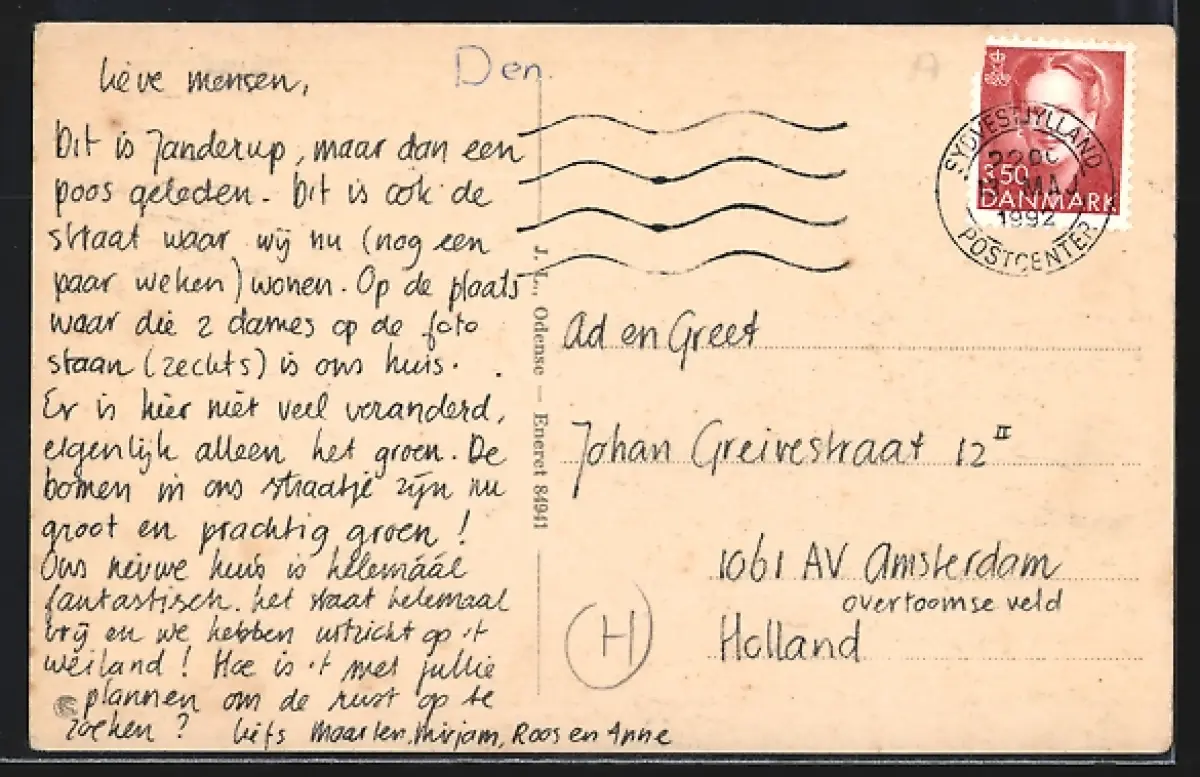 Den.
A
Lieve mensen,
Dit is Janderup, maar dan een
poos geleden. Dit is ook de
straat waar wij nu (nog een
paar weken) wonen. Op de plaats
waar die 2 dames op de foto
staan (rechts) is ons huis.
Er is hier niet veel veranderd,
eigenlijk alleen het groen. De
bomen in ons straatje zijn nu
groot en prachtig groen!
Ons nieuwe huis is helemáál
fantastisch. het staat helemaal
vrij en we hebben uitzicht op 't
weiland! Hoe is 't met jullie
plannen om de rust op te
zoeken? Liefs Maarten, Mirjam, Roos en Anne
J. J., Odense — Eneret 84941
SYDVESTJYLLAND
POSTCENTER
MAJ
1992
3.50
DANMARK
Ad en Greet
Johan Greivestraat 12 II
1061 AV Amsterdam
overtoomse veld
Holland
H